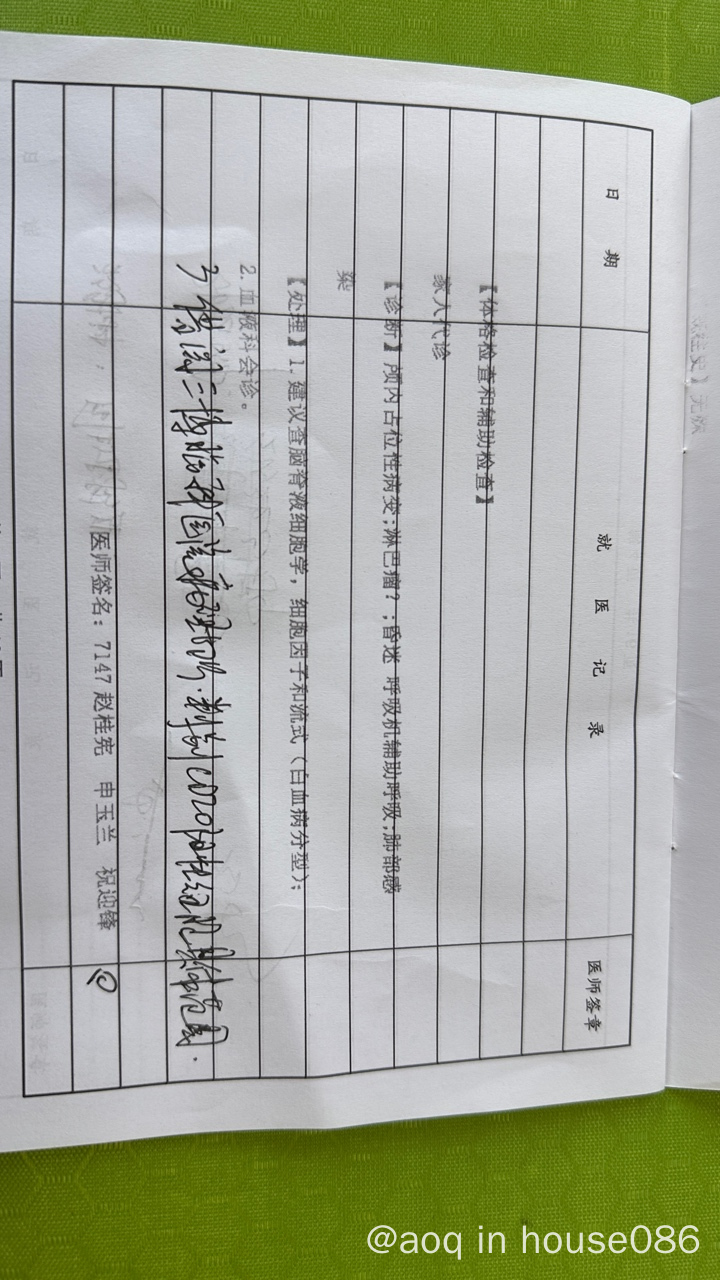 日 期 就 医 记 录 医师签章
【体格检查和辅助检查】
家人代诊
【诊断】颅内占位性病变;淋巴瘤?;昏迷 呼吸机辅助呼吸;肺部感
染
【处理】1. 建议查脑脊液细胞学, 细胞因子和流式（白血病分型）;
2. 血液科会诊。
3
医师签名: 7147 赵桂宪 申玉兰 祝迎锋
@aoq in house086